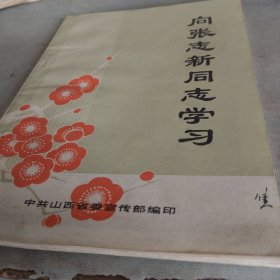 向张志新同志学习
中共山西省委宣传部编印